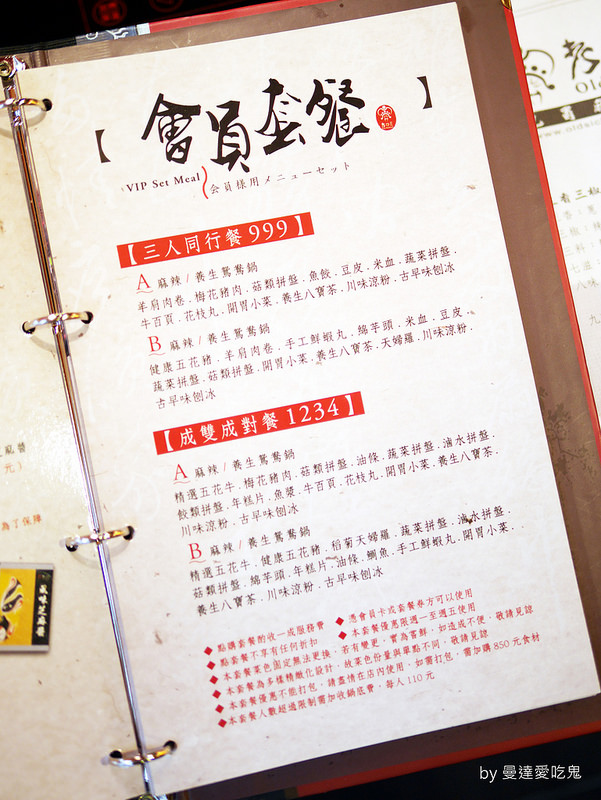 【會員套餐】
VIP Set Meal
会員様用メニューセット
【三人同行餐 999】
A 麻辣/養生鴛鴦鍋
羊肩肉卷.梅花豬肉.菇類拼盤.魚餃.豆皮.米血.蔬菜拼盤.
牛百頁.花枝丸.開胃小菜.養生八寶茶.川味涼粉.古早味刨冰
B 麻辣/養生鴛鴦鍋
健康五花豬.羊肩肉卷.手工鮮蝦丸.綿芋頭.米血.豆皮.
蔬菜拼盤.菇類拼盤.開胃小菜.養生八寶茶.天婦羅.川味涼粉.
古早味刨冰
【成雙成對餐 1234】
A 麻辣/養生鴛鴦鍋
精選五花牛.梅花豬肉.菇類拼盤.油條.蔬菜拼盤.滷水拼盤.
餃類拼盤.年糕片.魚漿.牛百頁.花枝丸.開胃小菜.養生八寶茶.
川味涼粉.古早味刨冰
B 麻辣/養生鴛鴦鍋
精選五花牛.健康五花豬.稻菊天婦羅.蔬菜拼盤.滷水拼盤.
菇類拼盤.綿芋頭.年糕片.油條.鯛魚.手工鮮蝦丸.開胃小菜.
養生八寶茶.川味涼粉.古早味刨冰
◆點購套餐酌收一成服務費
◆憑會員卡或套餐券方可以使用
◆點套餐不享有任何折扣
◆本套餐優惠限週一至週五使用
◆本套餐菜色固定無法更換.若有變更.實為嘗鮮.如造成不便.敬請見諒
◆本套餐為多樣精緻化設計.故菜色份量與單點不同.敬請見諒
◆本套餐優惠不能打包.請盡情在店內使用.如需打包.需加購850元食材
◆本套餐人數超過限制需加收鍋底費.每人110元
咸味芝麻醬
為了保障
元)
by 曼達愛吃鬼